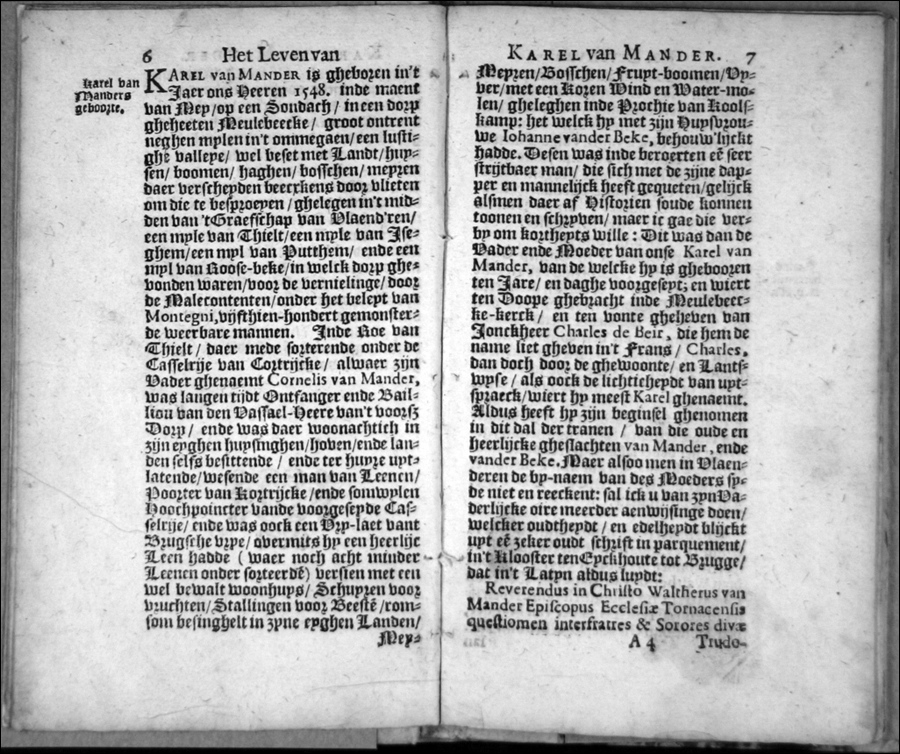 6 Het Leven van
Karel van
Manders
geboorte.
KAREL van MANDER is gheboren in't
Jaer ons Heeren 1548. inde maent
van Mey/op een Sondach/ in een dorp
gheheeten Meulebeecke/ groot ontrent
neghen mylen in't ommegaen/een lusti-
ghe valleye/ wel beset met Landt/huy-
sen/ boomen/ haghen/ bosschen/ meyren
daer verscheyden beecxkens door vlieten
om die te besproeyen/ghelegen in't mid-
den van 'tGraefschap van Vlaend'ren/
een myle van Thielt/een myle van Ise-
ghem/een myl van Putthem/ ende een
myl van Roose-beke/in welck dorp ghe-
vonden waren/voor de vernielinge/door
de Malecontenten/onder het beleyt van
Montegni, vijfthien-hondert gemonster-
de weerbare mannen. Inde Roe van
Thielt/ daer mede sorterende onder de
Casselrije van Cortrijcke/ alwaer zijn
Vader ghenaemt Cornelis van Mander,
was langen tijdt Ontfanger ende Bail-
liou van den Vassael-Heere van't voorsz
Dorp/ ende was daer woonachtich in
zijn eyghen huysinghen/hoven/ende lan-
den selfs besittende/ ende ter huyre uyt-
latende/wesende een man van Leenen/
Poorter van Kortrijcke/ende somwylen
Hoochpoincter vande voorgeseyde Cas-
selrije/ ende was oock een Vry-laet vant
Brugsche vrye/ overmits hy een heerlijc
Leen hadde ( waer noch acht minder
Leenen onder sorteerdē) versien met een
wel bewalt woonhuys/ Schuyren voor
vruchten/Stallingen voor Beestē/rom-
som besinghelt in zyne eyghen Landen/
Mey-
KAREL van MANDER. 7
Meyren/Bosschen/Fruyt-boomen/Vy-
ver/met een Koren Wind en Water-mo-
len/ gheleghen inde Prochie van Kools-
kamp: het welck hy met zijn Huysvrou-
we Iohanne vander Beke, behouw'lijckt
hadde. Desen was inde beroerten eē seer
strijtbaer man/ die sich met de zijne dap-
per en mannelijck heeft gequeten/gelijck
alsmen daer af Historien soude konnen
toonen en schryven/ maer ic gae die ver-
by om kortheyts wille : Dit was dan de
Vader ende Moeder van onse Karel van
Mander, van de welcke hy is ghebooren
ten Jare/ en daghe voorgesept; en wiert
ten Doope ghebracht inde Meulebeec-
ke-kerck/ en ten vonte gheheven van
Jonckheer Charles de Beir, die hem de
name liet gheven in't Frans/ Charles,
dan doch door de ghewoonte/ en Lants-
wyse/ als oock de lichticheydt van uyt-
spraeck/wiert hy meest Karel ghenaemt.
Aldus heeft hy zijn beginsel ghenomen
in dit dal der tranen / van die oude en
heerlijcke gheslachten van Mander, ende
vander Beke. Maer alsoo men in Vlaen-
deren de by-naem van des Moeders sy-
de niet en reeckent: sal ick u van zyn Va-
derlijcke oire meerder aenwijsinge doen/
welcker oudtheydt/ en edelheydt blijckt
uyt eē zeker oudt schrift in parquement/
in't Klooster ten Eyckhoute tot Brugge/
dat in't Latyn aldus luydt:
Reverendus in Christo Waltherus van
Mander Episcopus Ecclesiæ Tornacensis
questiomen interfratres & Sorores divæ
A 4 Trudo-